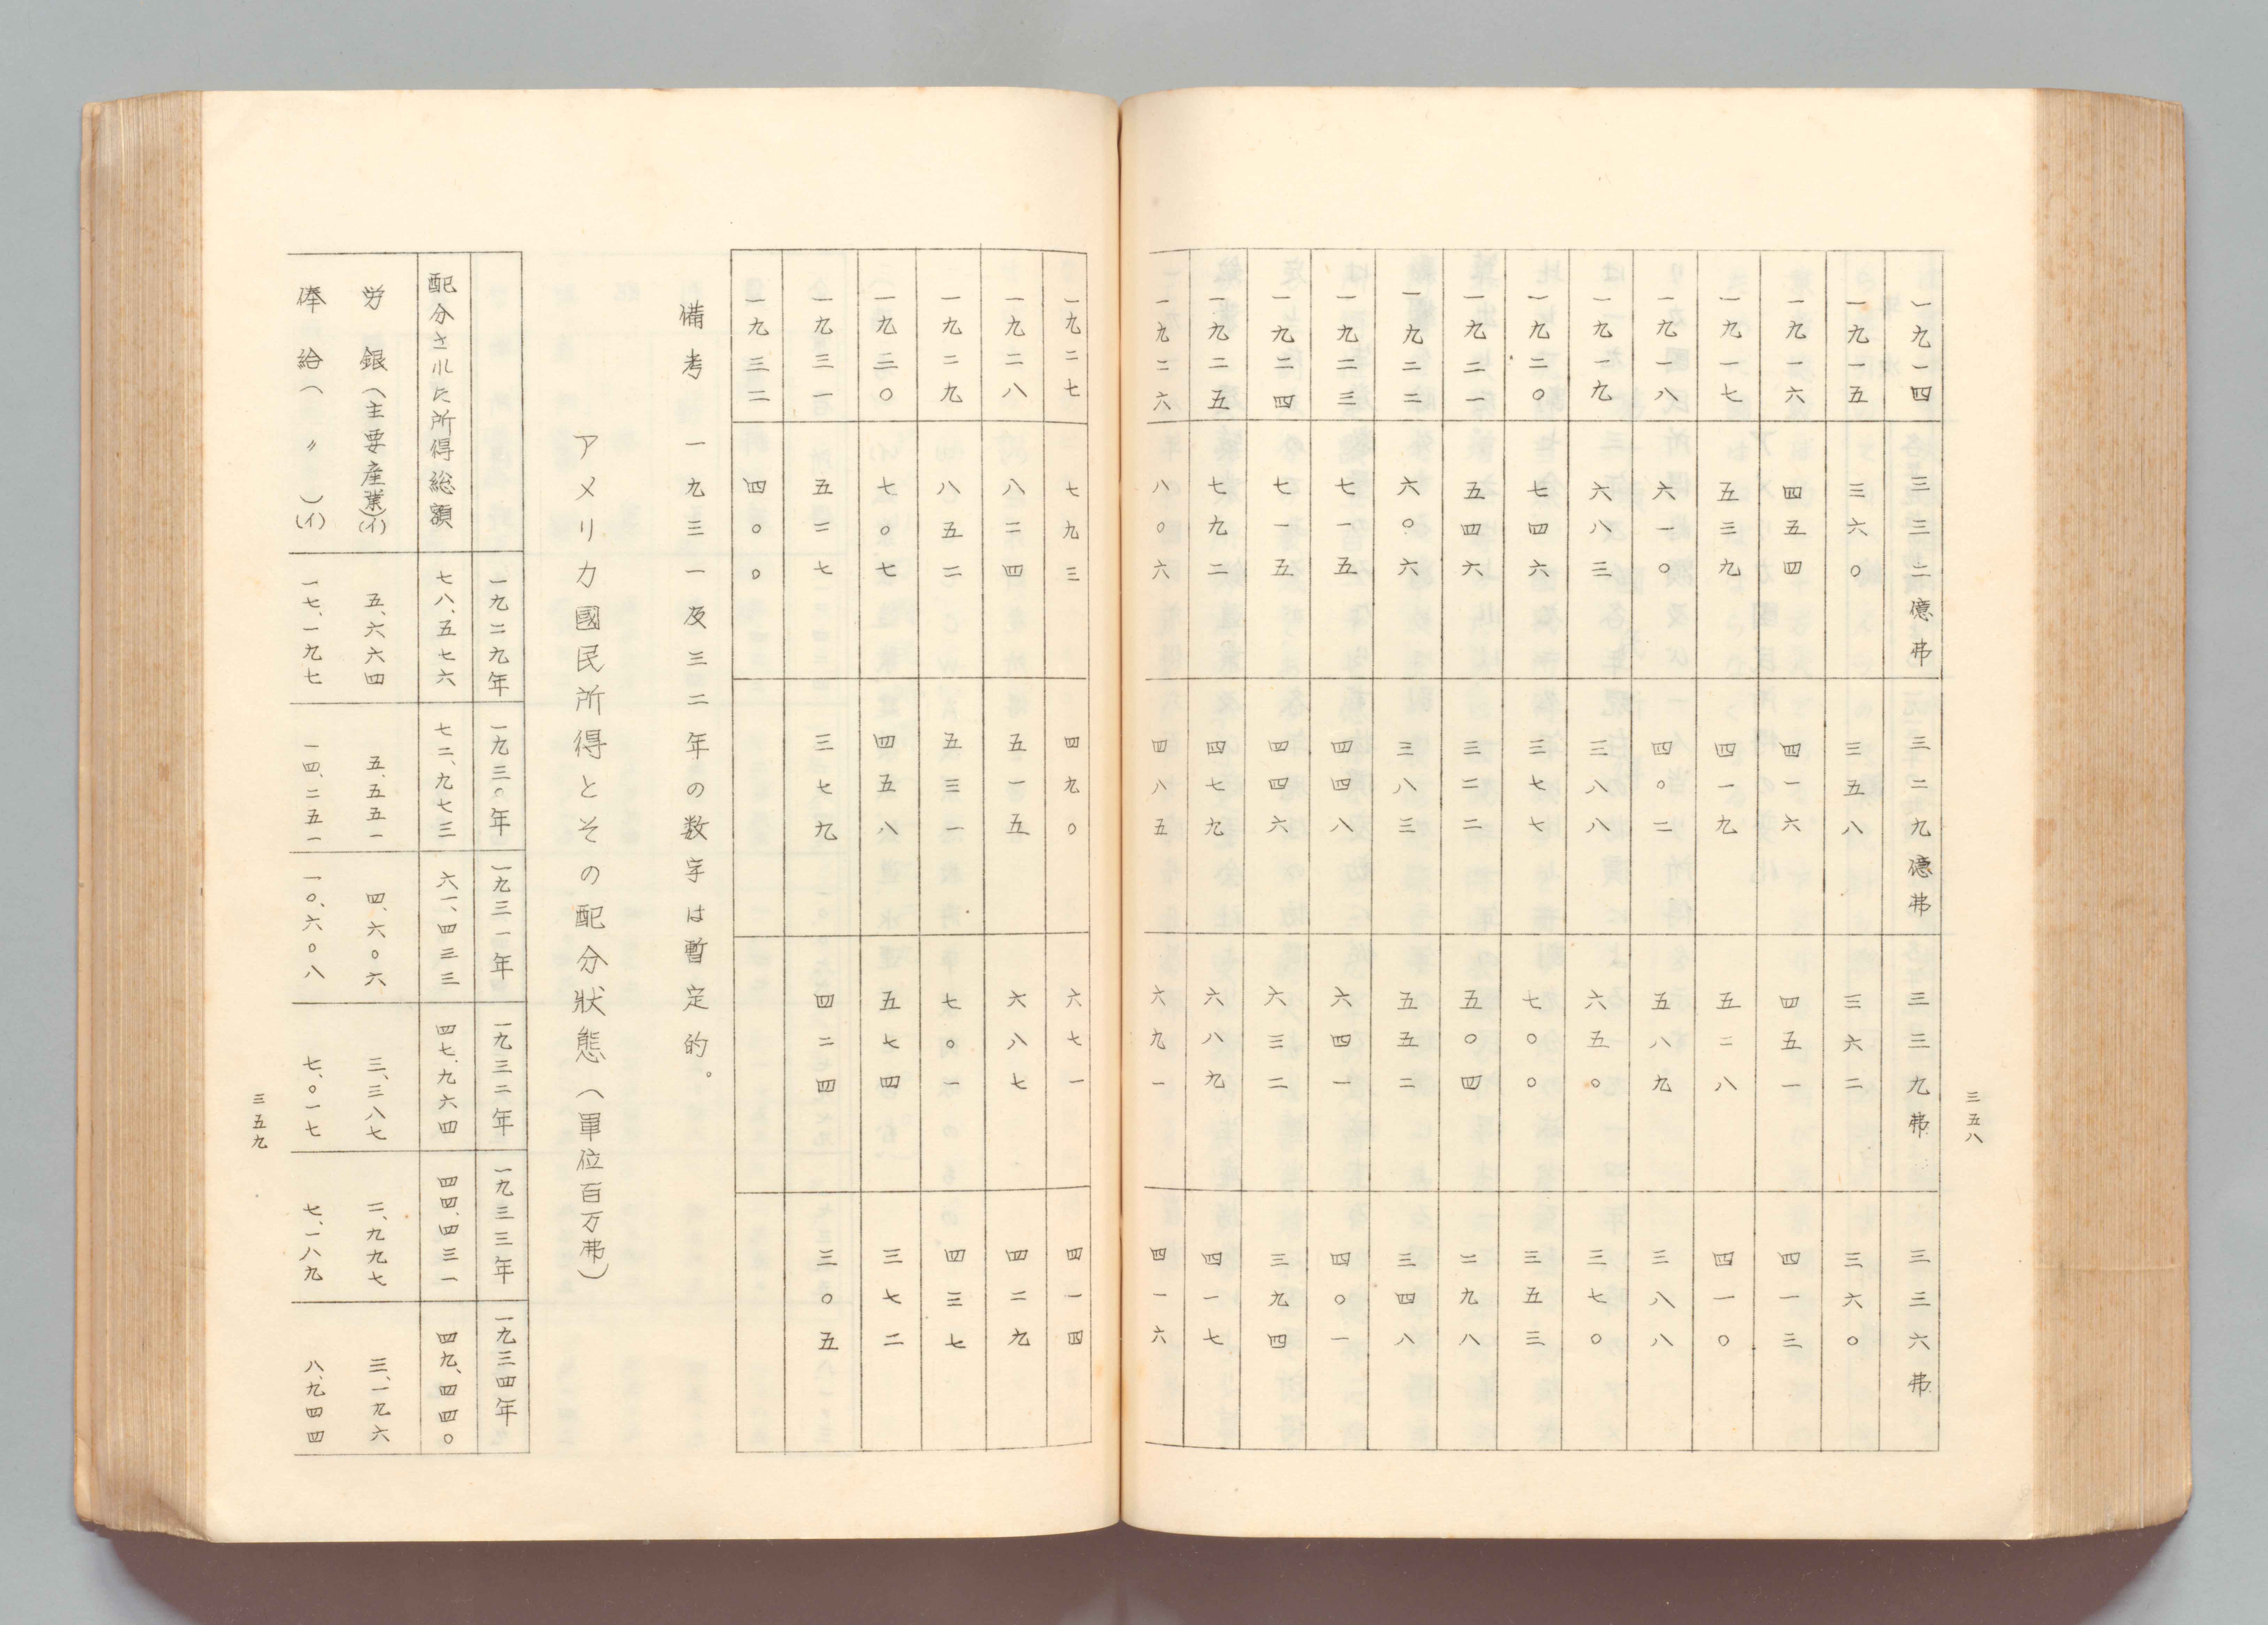 三五八
一九一四 三三二億弗 三二九億弗 三三九弗 三三六弗
一九一五 三六〇 三五八 三六二 三六〇
一九一六 四五四 四一六 四五一 四一三
一九一七 五三九 四一九 五二八 四一〇
一九一八 六一〇 四〇二 五八九 三八八
一九一九 六八三 三八八 六五〇 三七〇
一九二〇 七四六 三七七 七〇〇 三五三
一九二一 五四六 三二二 五〇四 二九八
一九二二 六〇六 三八三 五五二 三四八
一九二三 七一五 四四八 六四一 四〇一
一九二四 七一五 四四六 六三二 三九四
一九二五 七九二 四七九 六八九 四一七
一九二六 八〇六 四八五 六九一 四一六
一九二七 七九三 四九〇 六七一 四一四
一九二八 八二四 五一五 六八七 四二九
一九二九 八五二 五三一 七〇一 四三七
一九三〇 七〇七 四五八 五七四 三七二
一九三一 五二七 三七九 四二四 三〇五
一九三二 四〇〇
備考 一九三一及三二年の数字は暫定的。
アメリカ國民所得とその配分狀態（單位百万弗）
一九二九年 一九三〇年 一九三一年 一九三二年 一九三三年 一九三四年
配分された所得総額 七八、五七六 七二、九七三 六一、四三三 四七、九六四 四四、四三一 四九、四四〇
労銀（主要産業）(イ) 五、六六四 五、五五一 四、六〇六 三、三八七 二、九九七 三、一九六
俸給（〃）(イ) 一七、一九七 一四、二五一 一〇、六〇八 七、〇一七 七、一八九 八、九四四
三五九